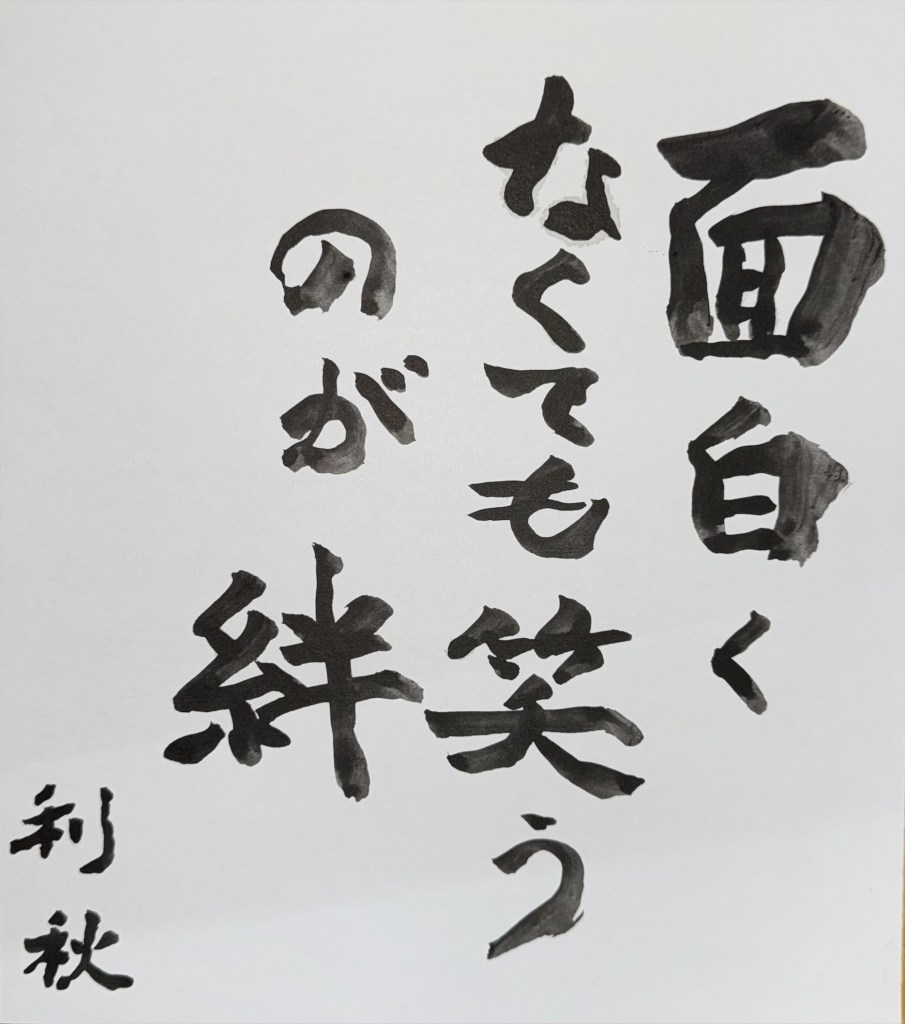 面白く
なくても笑う
のが絆
利秋